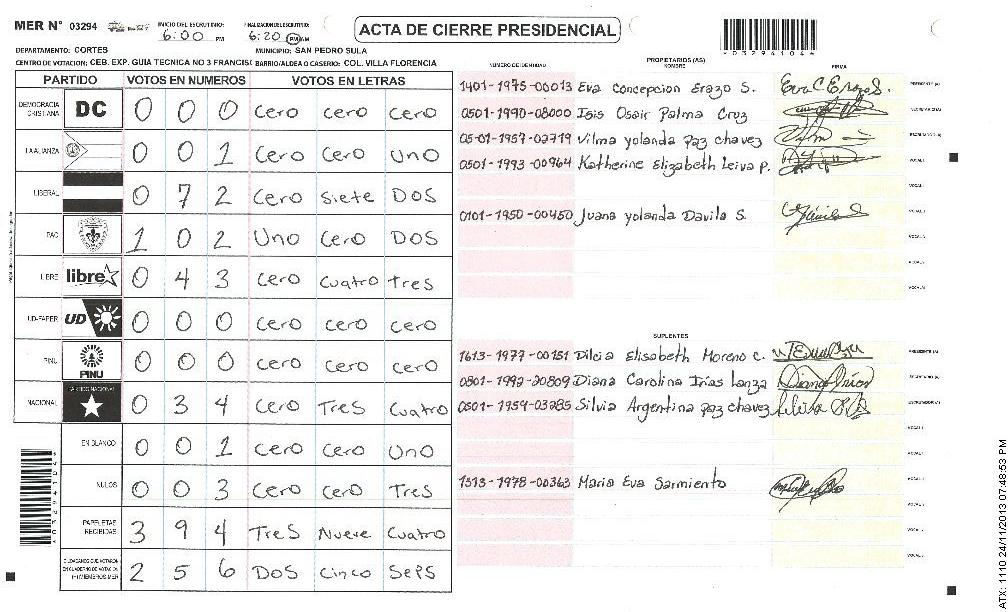 MER N° 03294
INICIO DEL ESCRUTINIO:
6:00 PM
FINALIZACION ESCRUTINIO:
6:20 PM AM
ACTA DE CIERRE PRESIDENCIAL
03294104
DEPARTAMENTO: CORTES
MUNICIPIO: SAN PEDRO SULA
CENTRO DE VOTACION: CEB. EXP. GUIA TECNICA NO 3 FRANCISC
BARRIO/ALDEA O CASERIO: COL. VILLA FLORENCIA
PARTIDO VOTOS EN NUMEROS VOTOS EN LETRAS
DEMOCRACIA CRISTIANA DC 0 0 0 Cero cero cero
LA ALIANZA 0 0 1 Cero Cero Uno
LIBERAL 0 7 2 Cero Siete DOS
PAC 1 0 2 Uno Cero DOS
LIBRE libre 0 4 3 Cero Cuatro Tres
UD-FAPER UD 0 0 0 Cero cero cero
PINU PINU 0 0 0 Cero cero cero
NACIONAL PARTIDO NACIONAL 0 3 4 Cero Tres Cuatro
EN BLANCO 0 0 1 Cero Cero Uno
NULOS 0 0 3 Cero Cero Tres
PAPELETAS RECIBIDAS 3 9 4 Tres Nueve Cuatro
CIUDADANOS QUE VOTARON EN CUADERNO DE VOTACION (+) MIEMBROS MER 2 5 6 DOS Cinco SePS
03294104
PROPIETARIOS (AS)
NUMERO DE IDENTIDAD NOMBRE FIRMA
1401-1975-00013 Eva Concepcion Erazo S. Eva C Erazo S. PRESIDENTE (A)
0501-1990-08000 Isis Osair Palma Cruz SECRETARIO (A)
05-01-1957-02719 Vilma yolanda paz chavez ESCRUTADOR (A)
0501-1993-00964 Katherine Elizabeth Leiva P. VOCAL
VOCAL
0101-1950-00450 Juana yolanda Davila S. VOCAL
VOCAL
VOCAL
VOCAL
SUPLENTES
1613-1977-00151 Dilcia Elisabeth Moreno C. PRESIDENTE (A)
0801-1992-20809 Diana Carolina Irias Lanza SECRETARIO (A)
0501-1959-03285 Silvia Argentina paz chavez ESCRUTADOR (A)
VOCAL
VOCAL
1513-1978-00363 Maria Eva Sarmiento VOCAL
VOCAL
VOCAL
ATX: 1110 24/11/2013 07:48:53 PM